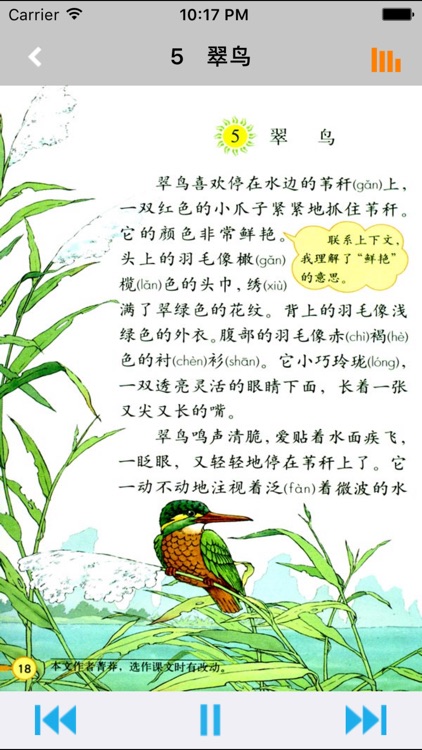 Carrier 10:17 PM
5 翠鸟
5 翠 鸟
翠鸟喜欢停在水边的苇秆(gǎn)上，
一双红色的小爪子紧紧地抓住苇秆。
它的颜色非常鲜艳。
头上的羽毛像橄(gǎn)
榄(lǎn)色的头巾，绣(xiù)
联系上下文，
我理解了“鲜艳”
的意思。
满了翠绿色的花纹。背上的羽毛像浅
绿色的外衣。腹部的羽毛像赤(chì)褐(hè)
色的衬(chèn)衫(shān)。它小巧玲珑(lóng)，
一双透亮灵活的眼睛下面，长着一张
又尖又长的嘴。
翠鸟鸣声清脆，爱贴着水面疾飞，
一眨眼，又轻轻地停在苇秆上了。它
一动不动地注视着泛(fàn)着微波的水
18 本文作者菁莽，选作课文时有改动。